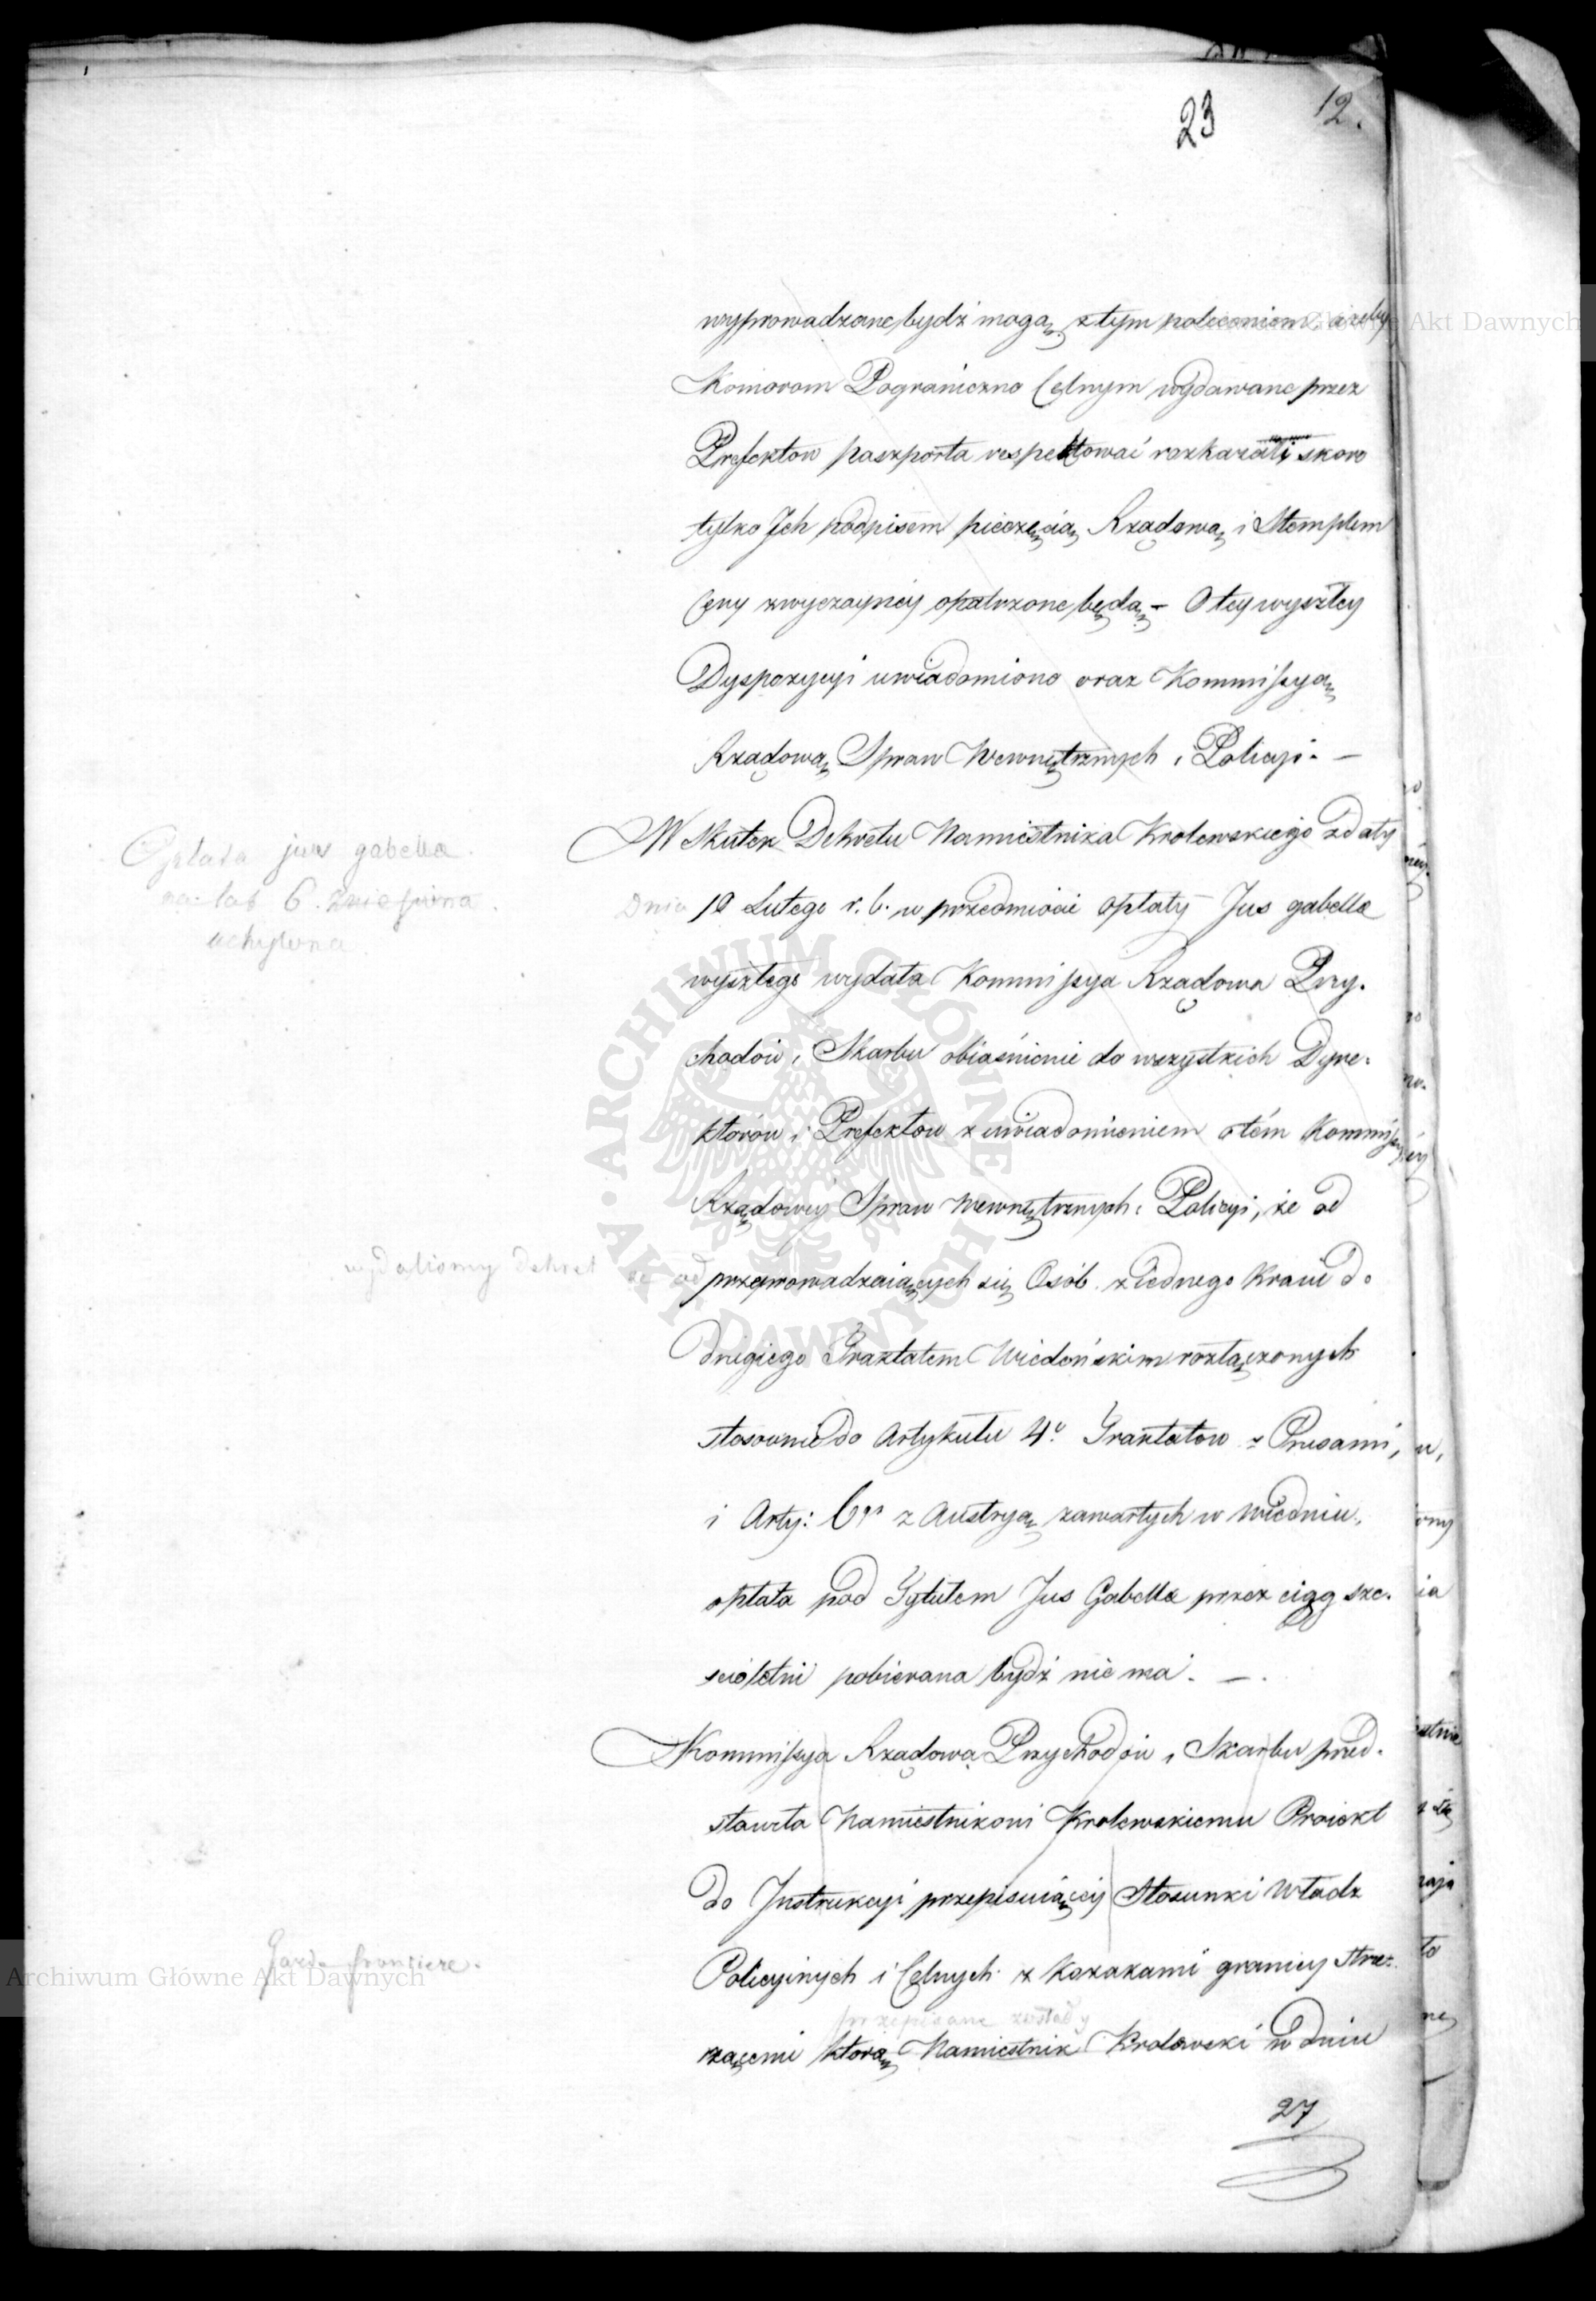 23 12.
wyprowadzane bydź mogą, z tym poleceniem, ażeby
Komorom Pograniczno Celnym wydawane przez
Prefektow paszporta respektować rozkazali skoro
tylko Ich podpisem pieczęcią Rządową i Stemplem
Ceny zwyczayney opatrzone będą – O tey wyszłey
Dyspozycyi uwiadomiono oraz Kommissyą
Rządową Spraw Wewnętrznych i Policyi. –
Opłata jus gabellae
na lat 6. zniesiona
uchylona
W Skutek Dekretu Namiestnika Krolewskiego z daty
Dnia 10 Lutego r. b. w przedmiocie opłaty Jus gabellae
wyszłego wydała Kommissya Rządowa Przy-
chodów i Skarbu obiaśnienie do wszystkich Dyre-
ktorów i Prefektow z uwiadomieniem o tém Kommissyi
Rządowey Spraw Wewnętrznych i Policyi, że od
wydaliśmy Dekret że od
przeprowadzaiących się Osób z iednego Kraiu do
drugiego Traktatem Wiedeńskim rozłączonych
stosownie do Artykułu 4º Traktatow z Prusami,
i Arty: 6go z Austryą zawartych w Wiedniu,
opłata pod Tytułem Jus Gabellae przez ciąg sze-
scioletni pobierana bydź nie ma. –
Kommissya Rządowa Przychodów i Skarbu przed-
stawiła Namiestnikowi Krolewskiemu Proiekt
do Instrukcyi przepisuiącey Stosunki Władz
Policyinych i Celnych z Kozakami granicy strze-
przepisane zostały
żącemi którą Namiestnik Krolewski w dniu
27
Archiwum Główne Akt Dawnych
ARCHIWUM GŁÓWNE AKT DAWNYCH